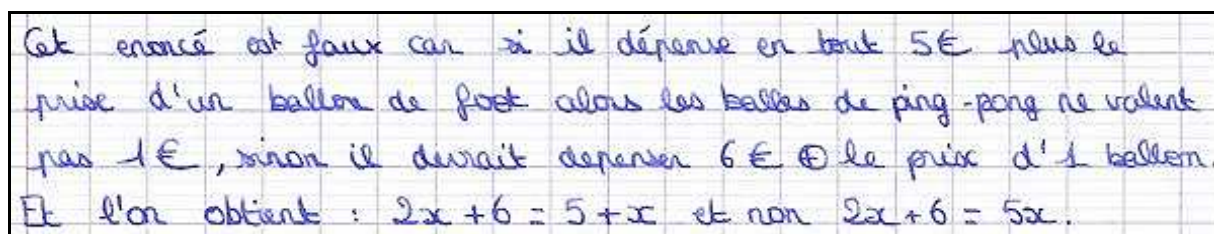 Cet enoncé est faux car si il dépense en tout 5€ plus le
prise d'un ballon de foot alors les balles de ping-pong ne valent
pas 1€, sinon il devrait depenser 6€ ⊕ le prix d'1 ballon.
Et l'on obtient : 2x+6 = 5+x et non 2x+6 = 5x.